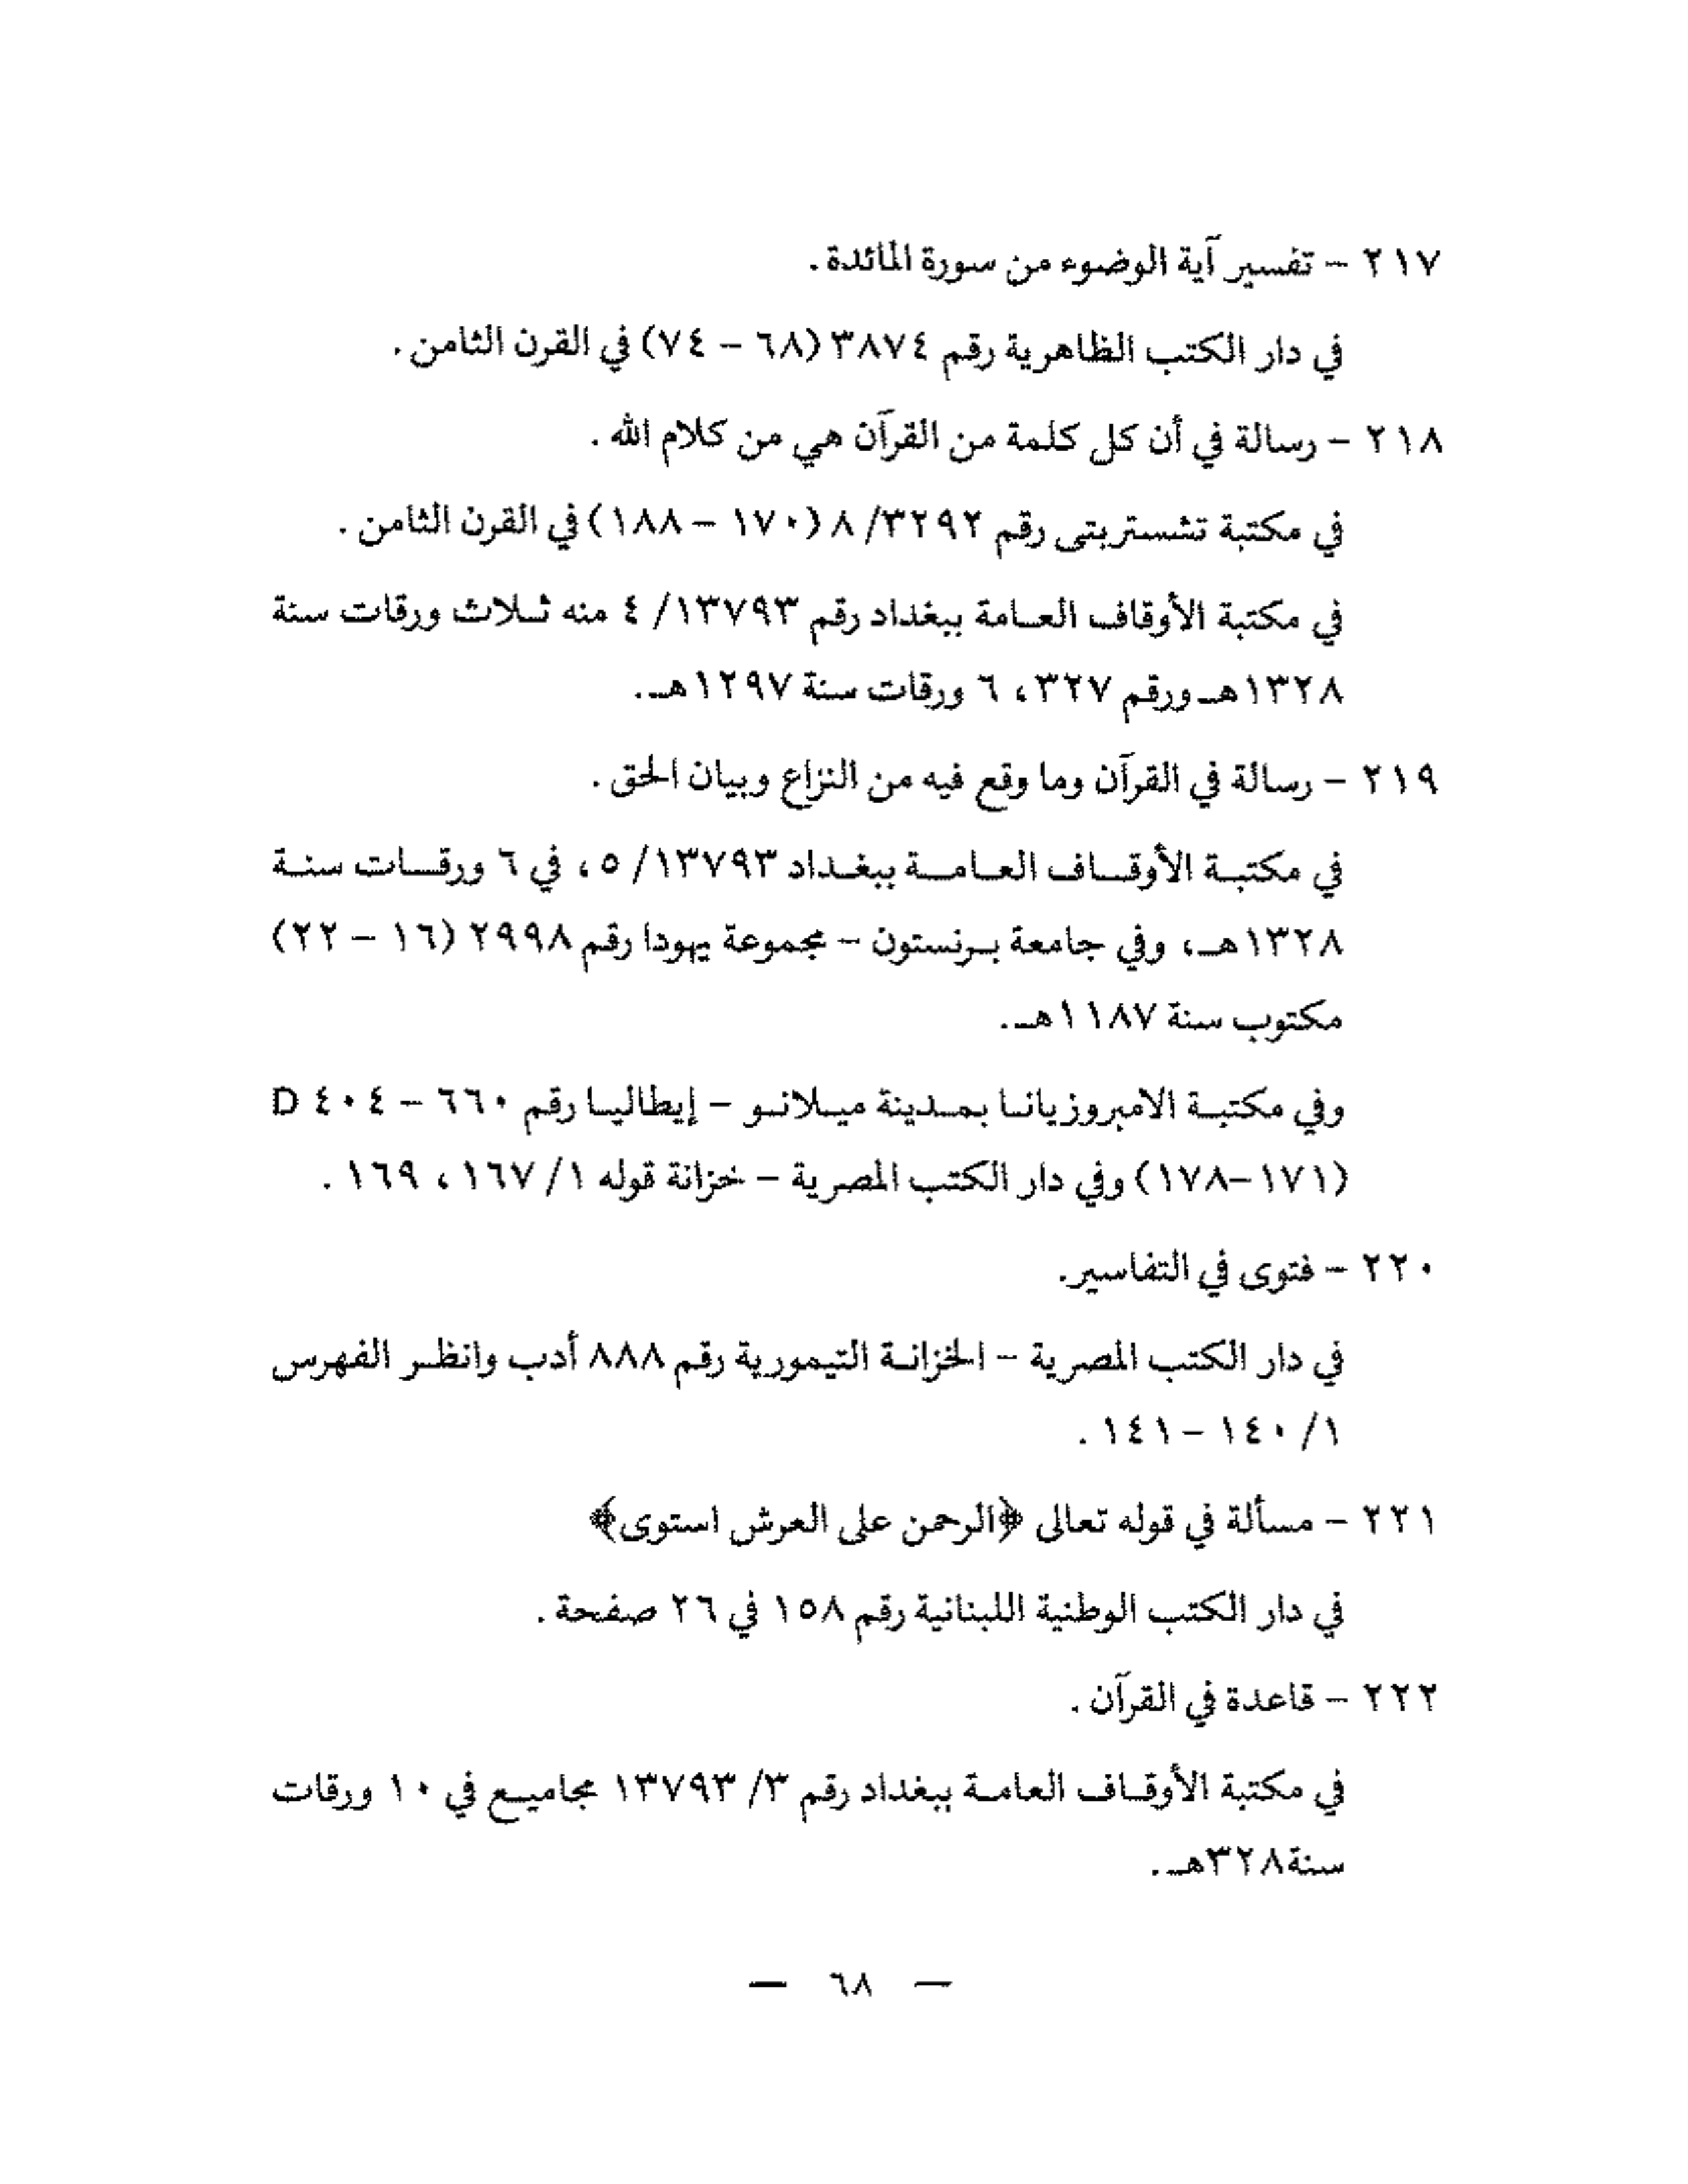 ٢١٧ – تفسير آية الوضوء من سورة المائدة .
في دار الكتب الظاهرية رقم ٣٨٧٤ (٦٨ – ٧٤) في القرن الثامن .
٢١٨ – رسالة في أن كل كلمة من القرآن هي من كلام الله .
في مكتبة تشستربتى رقم ٣٢٩٢/ ٨ (١٧٠ – ١٨٨) في القرن الثامن .
في مكتبة الأوقاف العامة ببغداد رقم ١٣٧٩٣/ ٤ منه ثلاث ورقات سنة
١٣٢٨هـ ورقم ٣٢٧، ٦ ورقات سنة ١٢٩٧هـ.
٢١٩ – رسالة في القرآن وما وقع فيه من النزاع وبيان الحق .
في مكتبة الأوقاف العامة ببغداد ١٣٧٩٣/ ٥، في ٦ ورقات سنة
١٣٢٨هـ، وفي جامعة برنستون – مجموعة يهودا رقم ٢٩٩٨ (١٦ – ٢٢)
مكتوب سنة ١١٨٧هـ.
وفي مكتبة الامبروزيانا بمدينة ميلانو – إيطاليا رقم ٦٦٠ – ٤٠٤ D
(١٧١–١٧٨) وفي دار الكتب المصرية – خزانة قوله ١/ ١٦٧، ١٦٩ .
٢٢٠ – فتوى في التفاسير.
في دار الكتب المصرية – الخزانة التيمورية رقم ٨٨٨ أدب وانظر الفهرس
١/ ١٤٠ – ١٤١ .
٢٢١ – مسألة في قوله تعالى ﴿الرحمن على العرش استوى﴾
في دار الكتب الوطنية اللبنانية رقم ١٥٨ في ٢٦ صفحة .
٢٢٢ – قاعدة في القرآن .
في مكتبة الأوقاف العامة ببغداد رقم ٣/ ١٣٧٩٣ مجاميع في ١٠ ورقات
سنة٣٢٨هـ .
— ٦٨ —